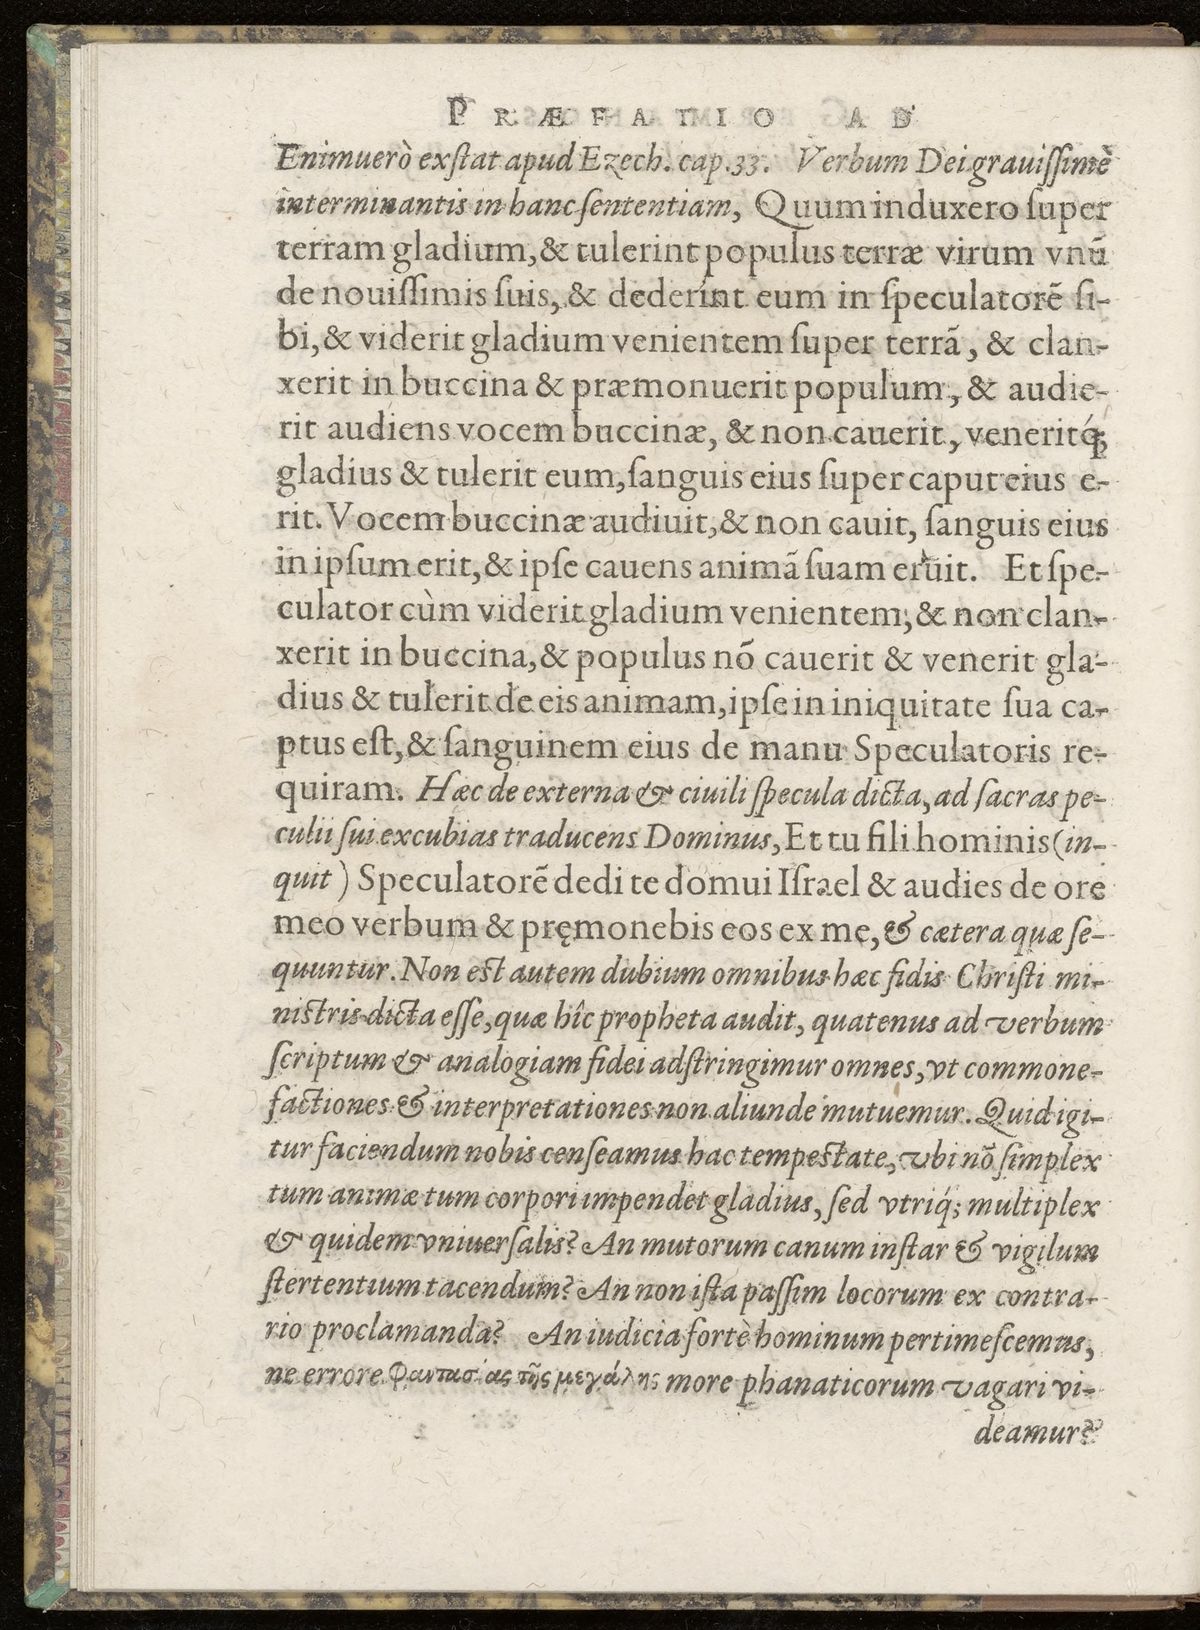 PRÆFATIO AD
Enimuerò exſtat apud Ezech. cap. 33. Verbum Dei grauiſſimè
interminantis in hanc ſententiam, Quum induxero ſuper
terram gladium, & tulerint populus terræ virum vnũ
de nouiſſimis ſuis, & dederint eum in ſpeculatorẽ ſi-
bi, & viderit gladium venientem ſuper terrã, & clan-
xerit in buccina & præmonuerit populum, & audie-
rit audiens vocem buccinæ, & non cauerit, veneritq́;
gladius & tulerit eum, ſanguis eius ſuper caput eius e-
rit. Vocem buccinæ audiuit, & non cauit, ſanguis eius
in ipſum erit, & ipſe cauens animã ſuam eruit. Et ſpe-
culator cùm viderit gladium venientem, & non clan-
xerit in buccina, & populus nõ cauerit & venerit gla-
dius & tulerit de eis animam, ipſe in iniquitate ſua ca-
ptus eſt, & ſanguinem eius de manu Speculatoris re-
quiram. Hæc de externa & ciuili ſpecula dicta, ad ſacras pe-
culii ſui excubias traducens Dominus, Et tu fili hominis (in-
quit) Speculatorẽ dedi te domui Iſrael & audies de ore
meo verbum & pręmonebis eos ex me, & cætera quæ ſe-
quuntur. Non eſt autem dubium omnibus hæc fidis Chriſti mi-
niſtris dicta eſſe, quæ hîc propheta audit, quatenus ad verbum
ſcriptum & analogiam fidei adſtringimur omnes, vt commone-
factiones & interpretationes non aliunde mutuemur. Quid igi-
tur faciendum nobis cenſeamus hac tempeſtate, vbi nõ ſimplex
tum animæ tum corpori impendet gladius, ſed vtriq́; multiplex
& quidem vniuerſalis? An mutorum canum inſtar & vigilum
ſtertentium tacendum? An non iſta paſſim locorum ex contra-
rio proclamanda? An iudicia fortè hominum pertimeſcemus,
ne errore Φαντασίας τῆς μεγάλης more phanaticorum vagari vi-
deamur?